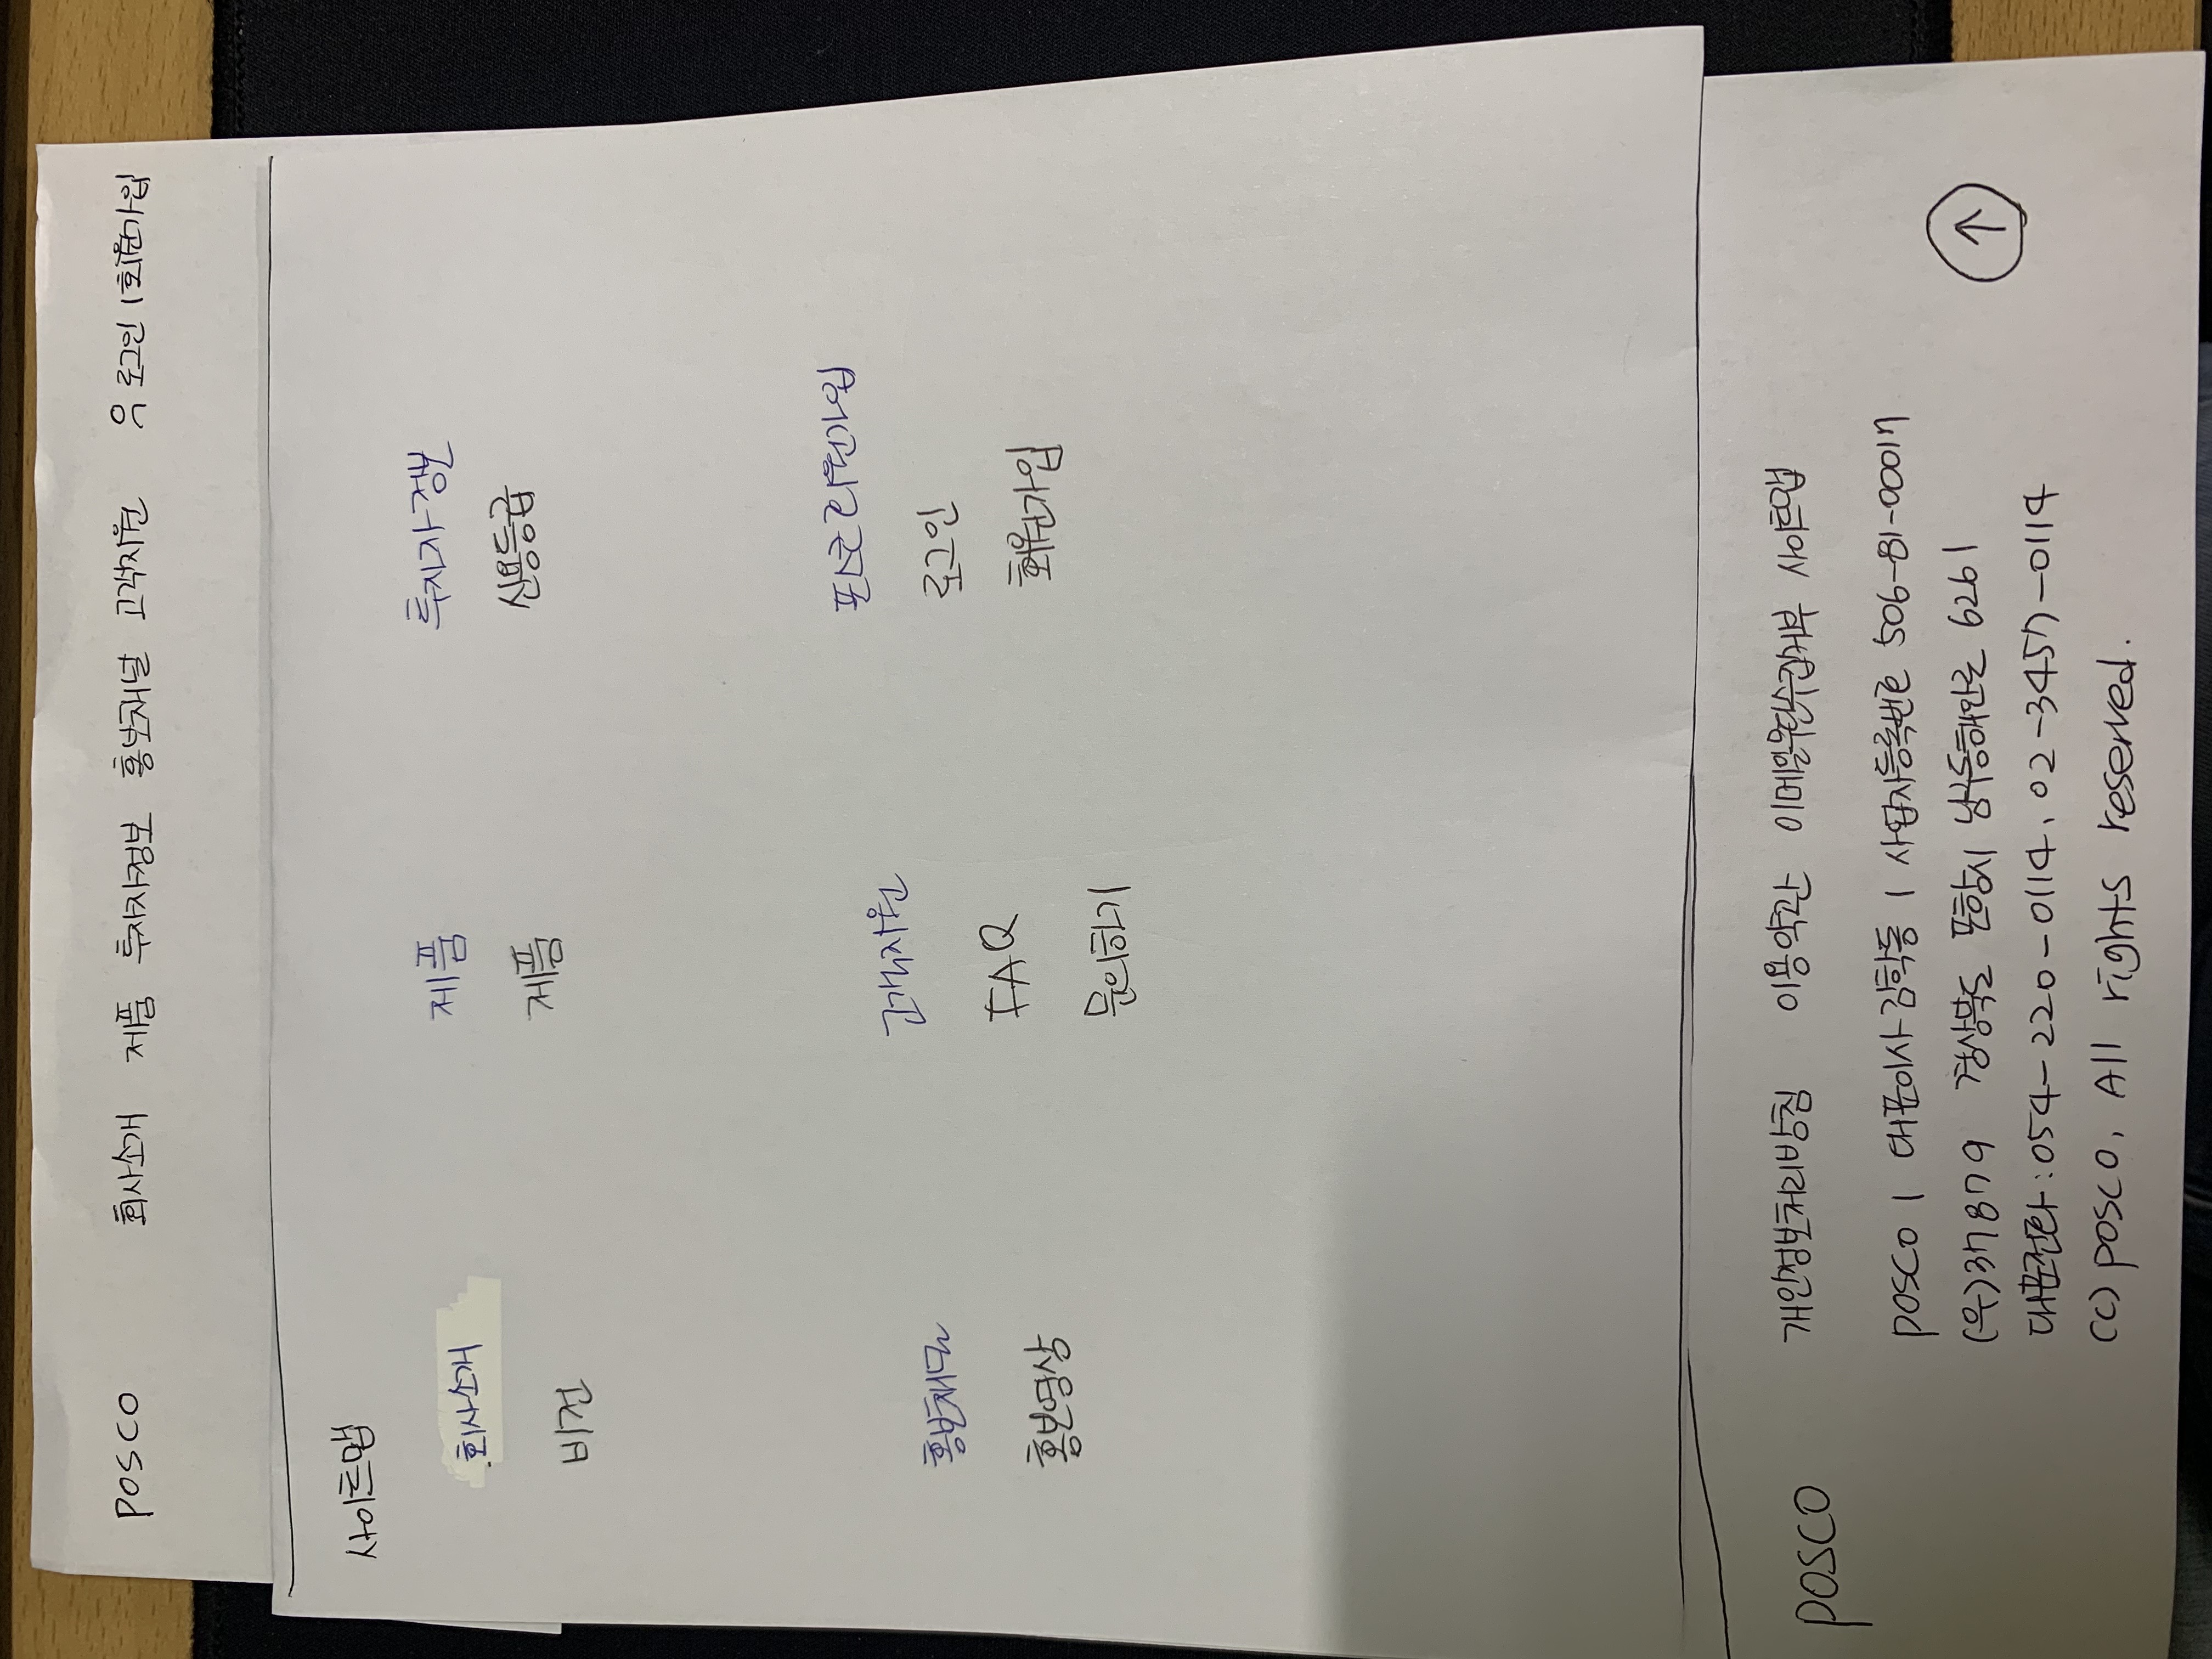 POSCO 회사소개 제품 투자자정보 홍보채널 고객지원 로그인 | 회원가입
사이트맵
회사소개 제품 투자자정보
비전 제품 신용등급
홍보채널 고객지원 포스코회원가입
홍보영상 FAQ 로그인
문의하기 회원가입
POSCO 개인정보처리방침 이용약관 이메일무단수집거부 사이트맵
POSCO | 대표이사 김학동 | 사업자등록번호 506-81-00017
(우)37879 경상북도 포항시 남구동해안로 6261
대표전화 : 054-220-0114, 02-3457-0114
(C) POSCO, All rights reserved.